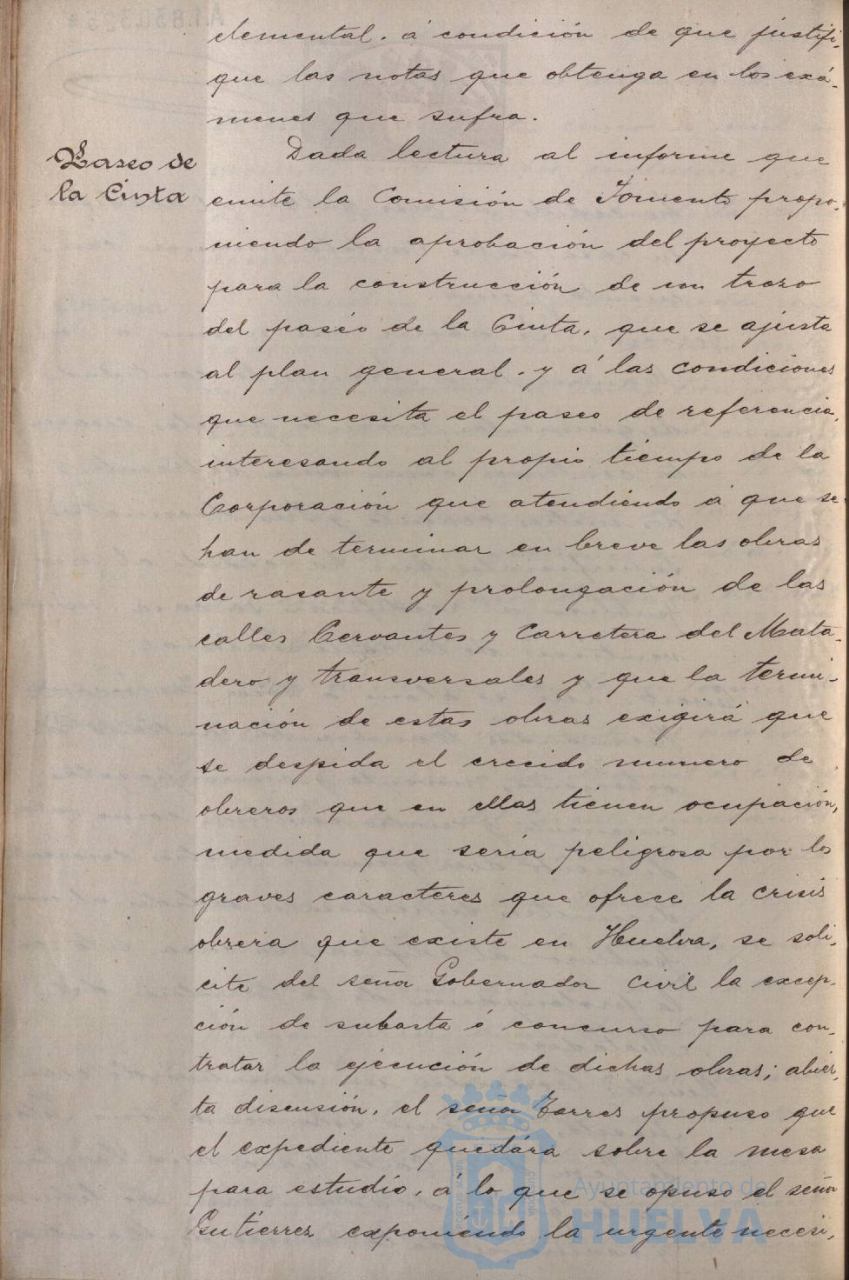 elemental. á condición de que justifi-
que las notas que obtenga en los exá-
menes que sufra.
Paseo de
la Cinta
Dada lectura al informe que
emite la Comisión de Fomento propo-
niendo la aprobación del proyecto
para la construcción de un trozo
del paséo de la Cinta, que se ajusta
al plan general. y á las condiciones
que necesita el paseo de referencia,
interesando al propio tiempo de la
Corporación que atendiendo á que se
han de terminar en breve las obras
de rasante y prolongación de las
calles Cervantes y Carretera del Mata-
dero y transversales y que la termi-
nación de estas obras exigirá que
se despida el crecido numero de
obreros que en ellas tienen ocupación,
medida que seria peligrosa por los
graves caracteres que ofrece la crisis
obrera que existe en Huelva, se soli-
cite del señor Gobernador Civil la excep-
ción de subasta ó concurso para con-
tratar la ejecución de dichas obras; abier-
ta discusión, el señor Torres propuso que
el expediente quedára sobre la mesa
para estudio, á lo que se opuso el señor
Gutierrez exponiendo la urgente necesi-
Ayuntamiento de
HUELVA